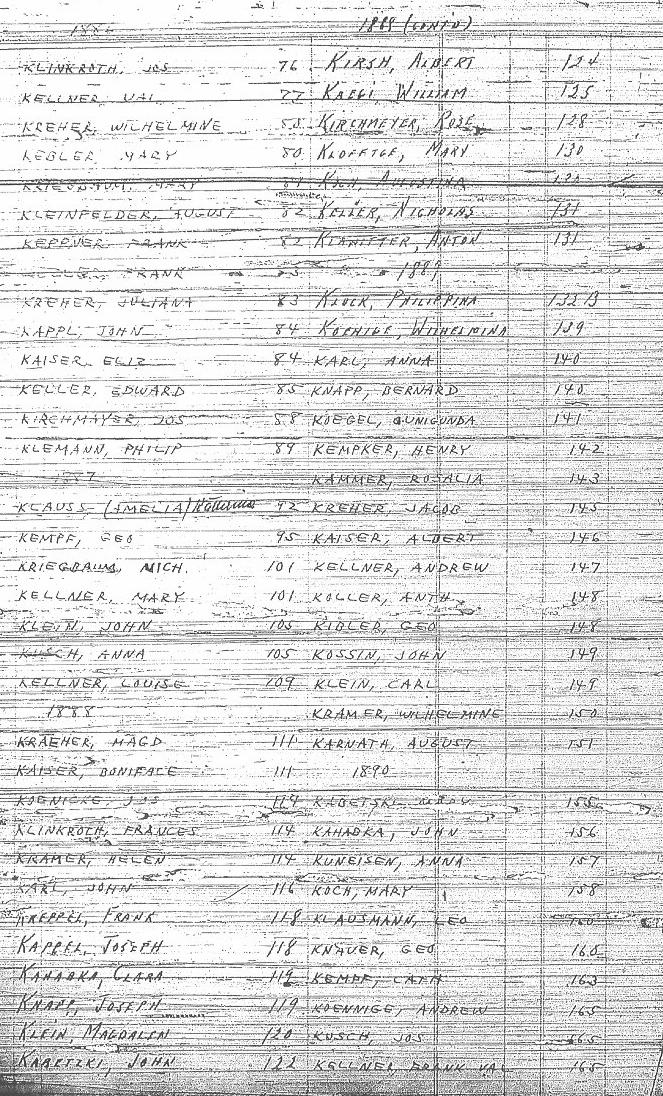 1886
KLINKROTH, JOS 76
KELLNER, VAL 77
KREHER, WILHELMINE
KEBLER, MARY 80
KRIEGBAUM, MARY 81
KLEINFELDER, AUGUST 82
KEPPNER, FRANK 82
FRANK
KREHER, JULIANA 83
KAPPL, JOHN 84
KAISER, ELIZ 84
KELLER, EDWARD 85
KIRCHMAYER, JOS 88
KLEMANN, PHILIP 89
1887
KLAUSS, (AMELIA) 92
KEMPF, GEO 95
KRIEGBAUM, MICH. 101
KELLNER, MARY 101
KLEIN, JOHN 105
KUSCH, ANNA 105
KELLNER, LOUISE 109
1888
KRAEHER, MAGD 111
KAISER, BONIFACE 111
KOENICKE, JOS 114
KLINKROTH, FRANCES 114
KRAMER, HELEN 114
KARL, JOHN 116
KREPPEL, FRANK 118
KAPPEL, JOSEPH 118
KAHABKA, CLARA 119
KNAPP, JOSEPH 119
KLEIN, MAGDALEN 120
KABETZKI, JOHN 122
1888 (CONT'D)
KIRSH, ALBERT 124
KAEGI, WILLIAM 125
KIRCHMEYER, ROSE 128
KLOFFTGE, MARY 130
KOCH, AUGUSTINA
KELLER, NICHOLAS 131
KLAHITTER, ANTON 131
1889
KLUCK, PHILIPPINA 132 B
KOEHIGE, WILHELMINA 139
KARL, ANNA 140
KNAPP, BERNARD 140
KOEGEL, CUNIGUNDA 141
KEMPKER, HENRY 142
KAMMER, ROSALIA 143
KREHER, JACOB 145
KAISER, ALBERT 146
KELLNER, ANDREW 147
KOLLER, ANTH. 148
KIBLER, GEO 148
KOSSIN, JOHN 149
KLEIN, CARL 149
KRAMER, WILHELMINE 150
KARNATA, AUGUST 151
1890
KABETSKI, 155
KAHABKA, JOHN 156
KUNEISEN, ANNA 157
KOCH, MARY 158
KLAUSMANN, LEO 160
KNAUER, GEO 160
KEMPF, CATH 163
KOENNIGE, ANDREW 165
KUSCH, JOS 165
KELLNER, FRANK VAL 165